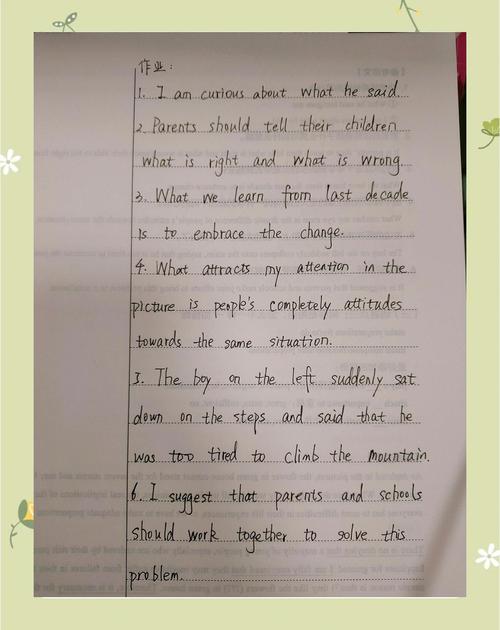 作业:
1. I am curious about what he said.
2. Parents should tell their children
what is right and what is wrong.
3. What we learn from last decade
is to embrace the change.
4. What attracts my attention in the
picture is people's completely attitudes
towards the same situation.
5. The boy on the left suddenly sat
down on the steps and said that he
was too tired to climb the mountain.
6. I suggest that parents and schools
should work together to solve this
problem.